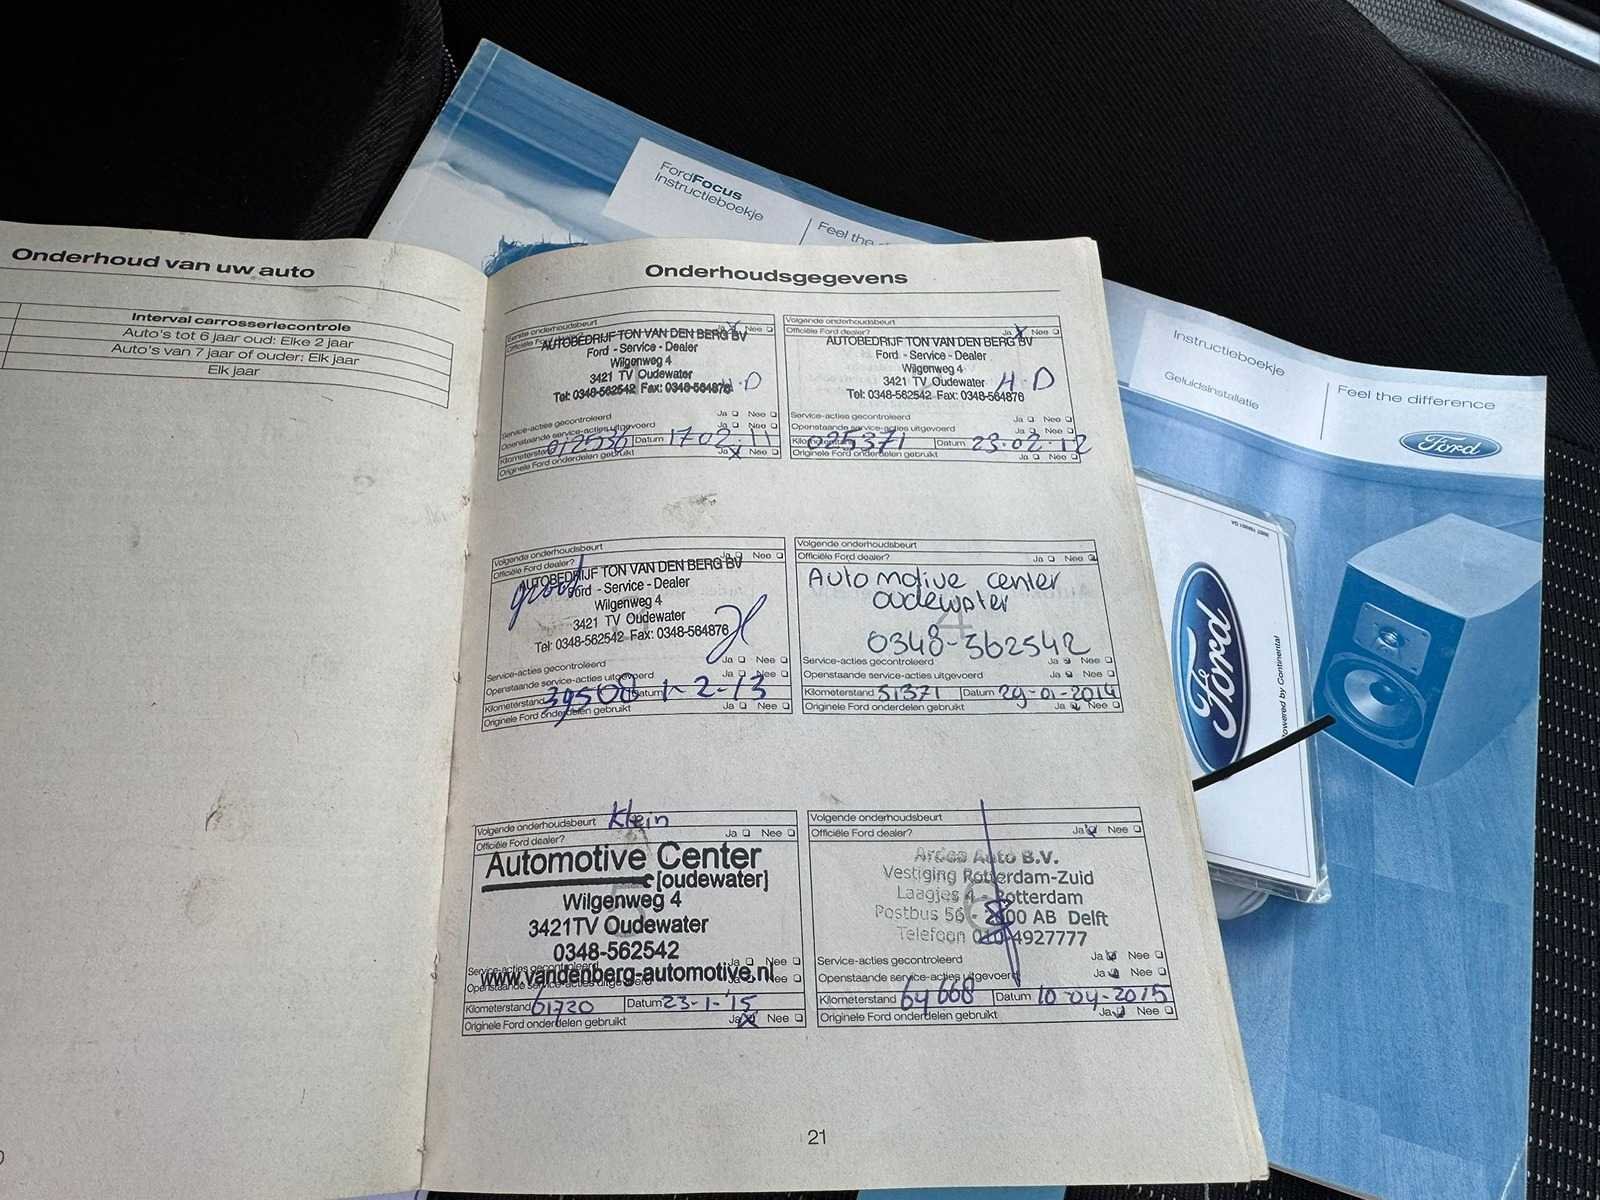 FordFocus
Instructieboekje
Feel the
Onderhoud van uw auto
Interval carrosseriecontrole
Auto's tot 6 jaar oud: Elke 2 jaar
Auto's van 7 jaar of ouder: Elk jaar
Elk jaar
Onderhoudsgegevens
Eerste onderhoudsbeurt
Ja Nee
AUTOBEDRIJF TON VAN DEN BERG BV
Ford - Service - Dealer
Wilgenweg 4
3421 TV Oudewater
Tel: 0348-562542 Fax: 0348-564876
H.D
Service-acties gecontroleerd Ja Nee
Openstaande service-acties uitgevoerd
Kilometerstand 012536 Datum 17.02.11
Originele Ford onderdelen gebruikt Ja Nee
Volgende onderhoudsbeurt
Officiële Ford dealer? Ja Nee
AUTOBEDRIJF TON VAN DEN BERG BV
Ford - Service - Dealer
Wilgenweg 4
3421 TV Oudewater H.D
Tel: 0348-562542 Fax: 0348-564876
Service-acties gecontroleerd Ja Nee
Openstaande service-acties uitgevoerd Ja Nee
Kilometerstand 025371 Datum 23.02.12
Originele Ford onderdelen gebruikt Ja Nee
Volgende onderhoudsbeurt
Officiële Ford dealer? Ja Nee
groot
AUTOBEDRIJF TON VAN DEN BERG BV
Ford - Service - Dealer
Wilgenweg 4
3421 TV Oudewater
Tel: 0348-562542 Fax: 0348-564876
Service-acties gecontroleerd Ja Nee
Openstaande service-acties uitgevoerd Ja Nee
Kilometerstand 39508 Datum 1-2-13
Originele Ford onderdelen gebruikt Ja Nee
Volgende onderhoudsbeurt
Officiële Ford dealer? Ja Nee
Automotive center
oudewater
4
0348-562542
Service-acties gecontroleerd Ja Nee
Openstaande service-acties uitgevoerd Ja Nee
Kilometerstand 51371 Datum 29-01-2014
Originele Ford onderdelen gebruikt Ja Nee
Volgende onderhoudsbeurt Klein
Officiële Ford dealer? Ja Nee
Automotive Center
[oudewater]
Wilgenweg 4
3421TV Oudewater
0348-562542
Service-acties gecontroleerd Ja Nee
www.vandenberg-automotive.nl
Openstaande service-acties uitgevoerd Nee
Kilometerstand 61720 Datum 23-1-'15
Originele Ford onderdelen gebruikt Ja Nee
Volgende onderhoudsbeurt
Officiële Ford dealer? Ja Nee
Ardea Auto B.V.
Vestiging Rotterdam-Zuid
Laagjes 4 - Rotterdam
Postbus 56 - 2600 AB Delft
Telefoon 010-4927777
Service-acties gecontroleerd Ja Nee
Openstaande service-acties uitgevoerd Ja Nee
Kilometerstand 64668 Datum 10-04-2015
Originele Ford onderdelen gebruikt Ja Nee
21
Instructieboekje
Geluidsinstallatie
Feel the difference
Ford
Ford
Powered by Continental